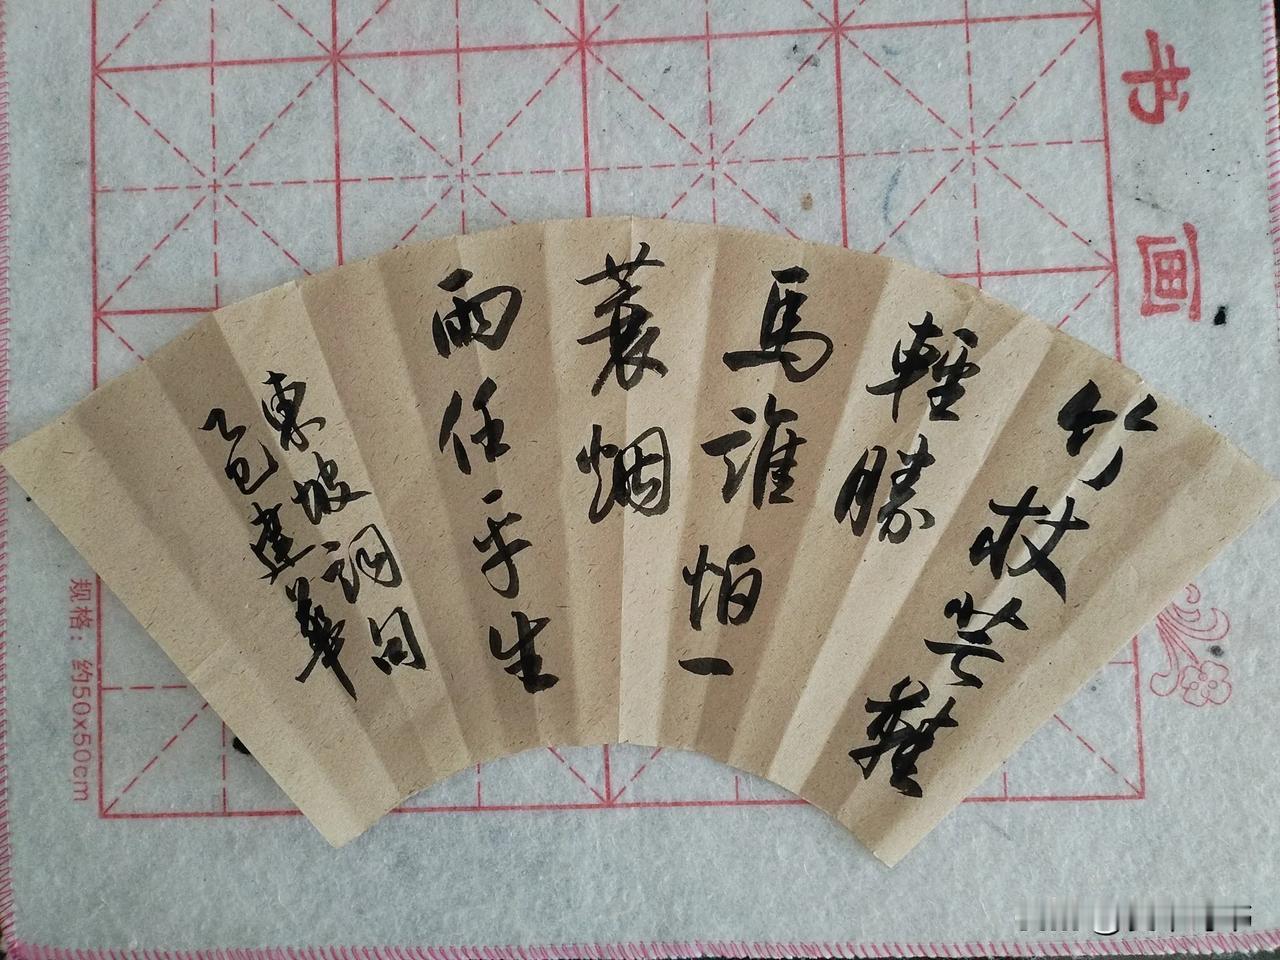 竹杖芒鞋
輕勝
馬誰怕一
蓑烟
雨任平生
東坡詞句
乙巳建華
书画
规格：约50x50cm